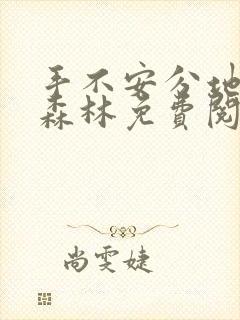 手不安分地
森林免费阅
尚雯婕